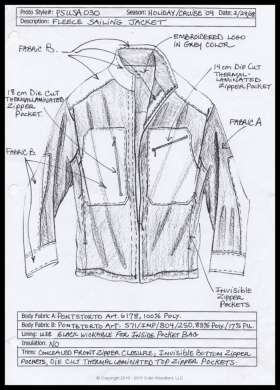 Proto Style#: PSUSA030 Season: HOLIDAY/CRUISE '09 Date: 2/29/08
Description: FLEECE SAILING JACKET
FABRIC B.
EMBROIDERED LOGO
IN GREY COLOR
14 CM DIE CUT
THERMAL-
LAMINATED
ZIPPER
POCKET.
18 CM DIE CUT
THERMAL LAMINATED
ZIPPER
POCKET.
FABRIC A
FABRIC B.
INVISIBLE
ZIPPER
POCKETS
Body Fabric A: PONTETORTO ART. 6178, 100% POLY.
Body Fabric B: PONTETORTO ART. 571/IMP/804/250. 83% POLY/17% PU.
Lining: USE BLACK WICKABLE FOR INSIDE POCKET BAG
Insulation: NO
Trims: CONCEALED FRONT ZIPPER CLOSURE, INVISIBLE BOTTOM ZIPPER
POCKETS, DIE CUT THERMALLAMINATED TOP ZIPPER POCKETS.